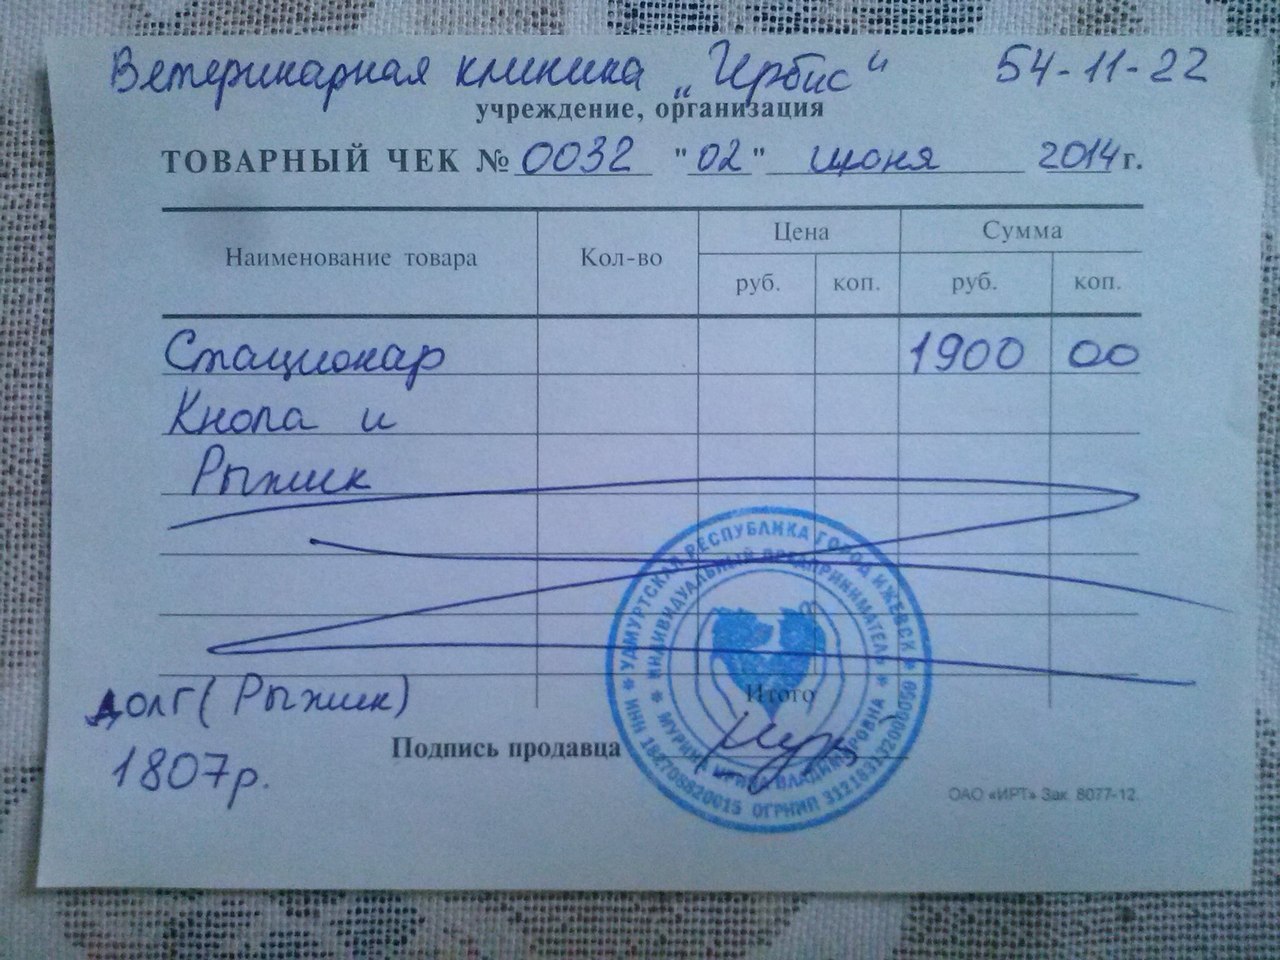 Ветеринарная клиника „Ирбис“ 54-11-22
учреждение, организация
ТОВАРНЫЙ ЧЕК № 0032 "02" июня 2014 г.
Наименование товара Кол-во Цена Сумма
руб. коп. руб. коп.
Стационар 1900 00
Кнопа и
Рыжик
Итого
долг (Рыжик)
1807р.
Подпись продавца
ОАО «ИРТ» Зак. 8077-12.
* УДМУРТСКАЯ РЕСПУБЛИКА ГОРОД ИЖЕВСК *
* ИНДИВИДУАЛЬНЫЙ ПРЕДПРИНИМАТЕЛЬ *
МУРИНА ИРИНА ВЛАДИМИРОВНА
ИНН ОГРНИП